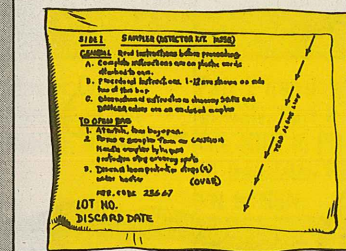 SIDE 1 SAMPLER (DETECTOR KIT M256)
GENERAL Read instructions before proceeding.
A. Complete instructions are on plastic cards
attached to
B. Procedural instructions 1-12 are shown on side
two of this bag
C. instructions showing SAFE and
DANGER colors are on enclosed sampler
TO OPEN BAG
1. At notch, tear bag open.
2. Remove sampler from
Handle sampler by
protective strip covering spots
3. Discard protective strip(s)
under heater
(OVER)
MFR. CODE 28667
LOT NO.
DISCARD DATE
TEAR ALONG LINE